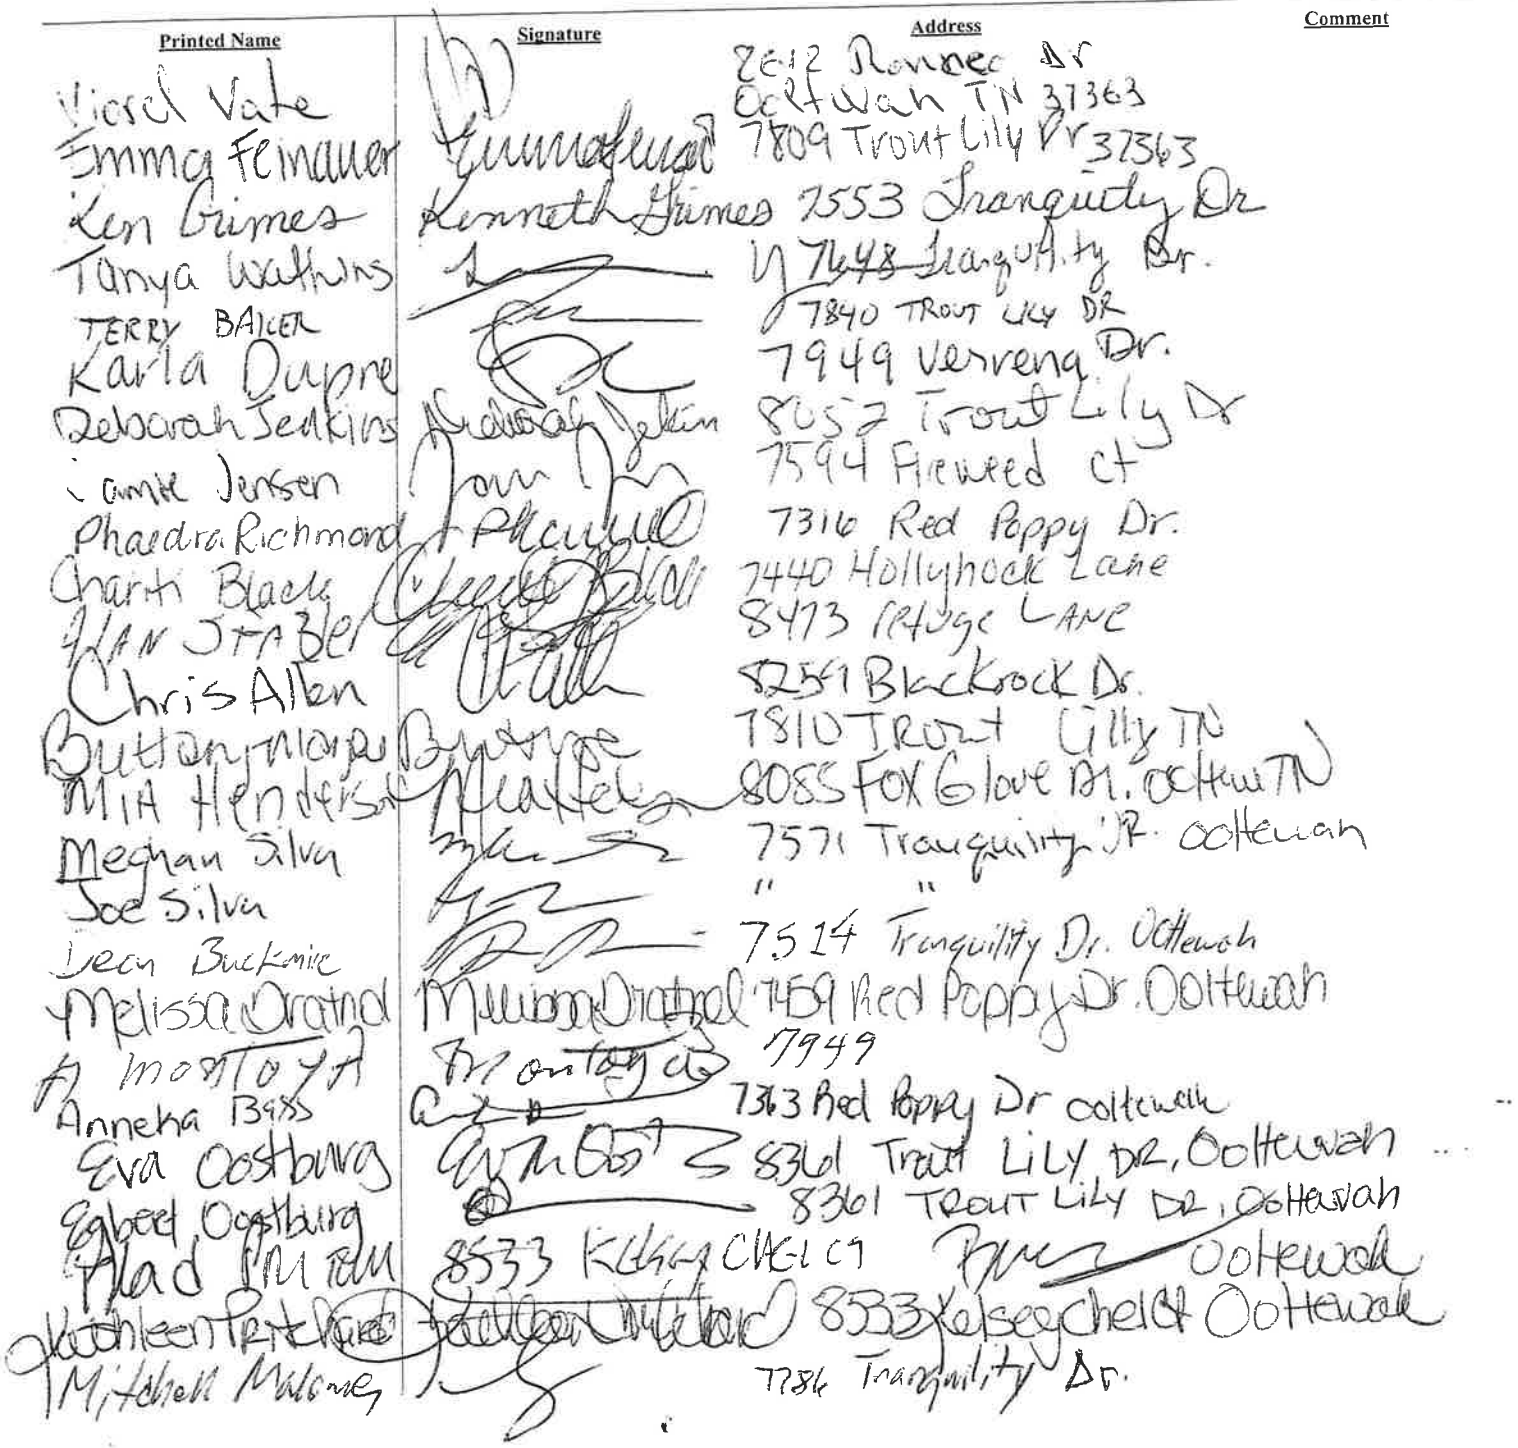 Printed Name Signature Address Comment
Viorel Vate Dr
Ooltwah TN 37363
Emma Feinauer 7809 Trout Lily Dr 37363
Ken Grimes Kenneth Grimes 7553 Tranquility Dr
Tanya Watkins 7648 Tranquility Dr.
TERRY BAKER 7840 TROUT LILY DR
Karla Dupre 7949 Verrena Dr.
Deborah Jenkins 8052 Trout Lily Dr
Jamie Jensen 7594 Fireweed Ct
Phaedra Richmond 7316 Red Poppy Dr.
Chariti Black 7440 Hollyhock Lane
ALAN STABler 8473 refuge LANE
Chris Allen Blackrock Dr.
7810 TROUT Lilly TN
MIA Henderson 8085 FOX Glove Dr. TN
Meghan Silva 7571 Tranquility DR. Ooltewah
Joe Silva " "
Dean Buckmire 7514 Tranquility Dr. Ooltewah
Melissa Dratnol 7459 Red Poppy Dr. Ooltewah
A MONTOYA Montoya 7949
Anneka Bass 7363 Red Poppy Dr ooltewah
Eva Oostburg 8361 Trout LiLY DR, Ooltewah
Egbert Oostburg 8361 TROUT LiLY DR, Ooltewah
8533 Ooltewah
Kathleen Pritchard Kathleen Pritchard 8533 Kelsey Chel Ct Ooltewah
Mitchell Maloney 7786 Tranquility Dr.